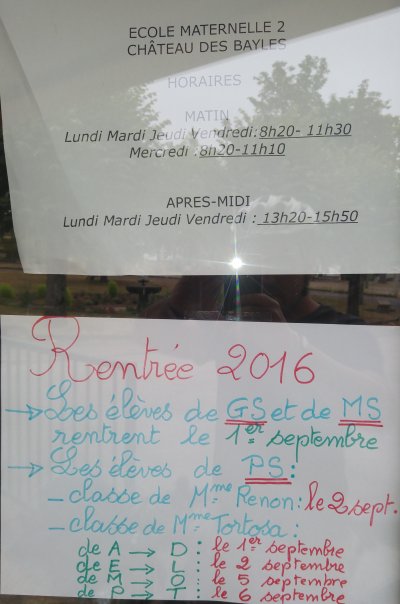 ECOLE MATERNELLE 2
CHÂTEAU DES BAYLES
HORAIRES
MATIN
Lundi Mardi Jeudi Vendredi:8h20- 11h30
Mercredi :8h20-11h10
APRES-MIDI
Lundi Mardi Jeudi Vendredi : 13h20-15h50
Rentrée 2016
→ Les élèves de GS et de MS
rentrent le 1er septembre
→ Les élèves de PS :
- classe de Mme Renon : le 2 sept.
- classe de Mme Tortosa :
de A → D : le 1er septembre
de E → L : le 2 septembre
de M → O : le 5 septembre
de P → T : le 6 septembre